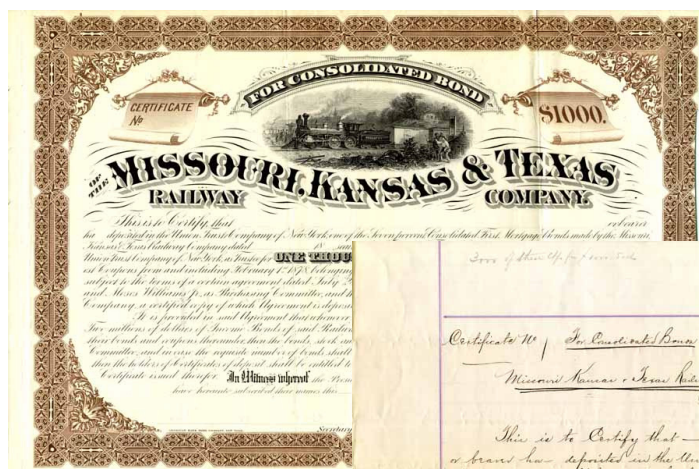 FOR CONSOLIDATED BOND
CERTIFICATE
No
$1000.
OF THE
MISSOURI, KANSAS & TEXAS
RAILWAY COMPANY.
This is to Certify, that or bearer
ha deposited in the Union Trust Company of New York, one of the Seven per cent Consolidated First Mortgage Bonds made by the Missouri,
Kansas & Texas Railway Company dated 18
Union Trust Company of New York, as Trustee for ONE THOU
est Coupons from and including February 1st 1878, belonging
subject to the terms of a certain agreement dated July
and Moses Williams Jr. as Purchasing Committee, and
Company, a certified copy of which Agreement is depos
It is provided in said Agreement that whenever
Two millions of dollars of Income Bonds of said Railwa
their bonds and coupons thereunder, then the bonds, stock an
Committee, and in case the requisite number of bonds shall
then the holders of Certificates of deposit shall be entitled to
Certificate issued therefor. In Witness whereof the Presid
have hereunto subscribed their names this
Secretary
Certificate No For Consolidated Bond
Missouri Kansas & Texas Rail
This is to Certify that
or bearer ha deposited in the Un